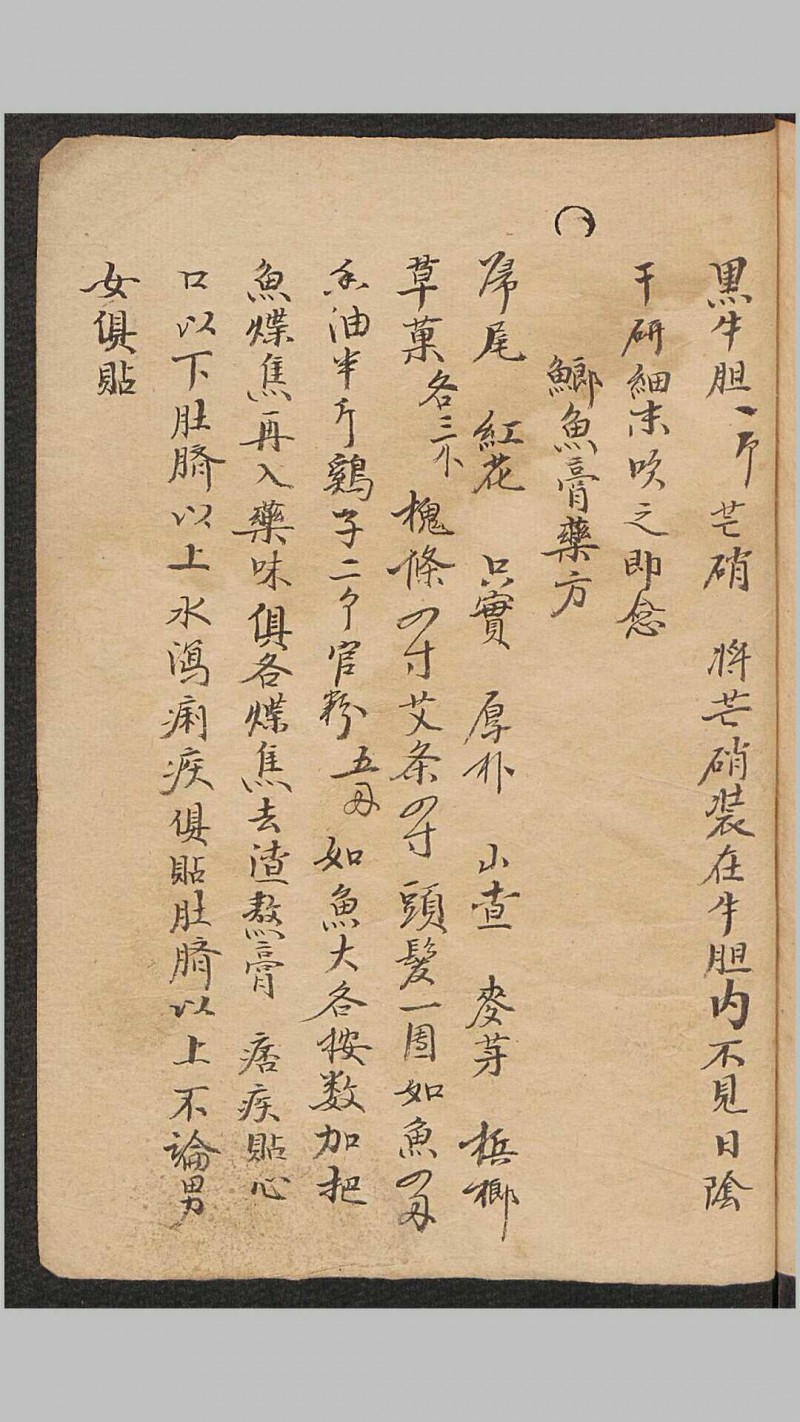 黒牛胆一个芒硝 将芒硝装在牛胆内不見日陰
干研細末吹之即念
鯽魚膏藥方
㷌尾 紅花 只實 厚朴 山查 麥芽 梹榔
草菓各三个 槐條四寸艾条四寸頭髮一團如魚四両
香油半斤鷄子二个官粉五両 如魚大各按数加把
魚煠焦再入藥味俱各煠焦去渣熬膏 痞疾貼心
口以下肚臍以上水瀉痢疾俱貼肚臍以上不論男
女俱貼